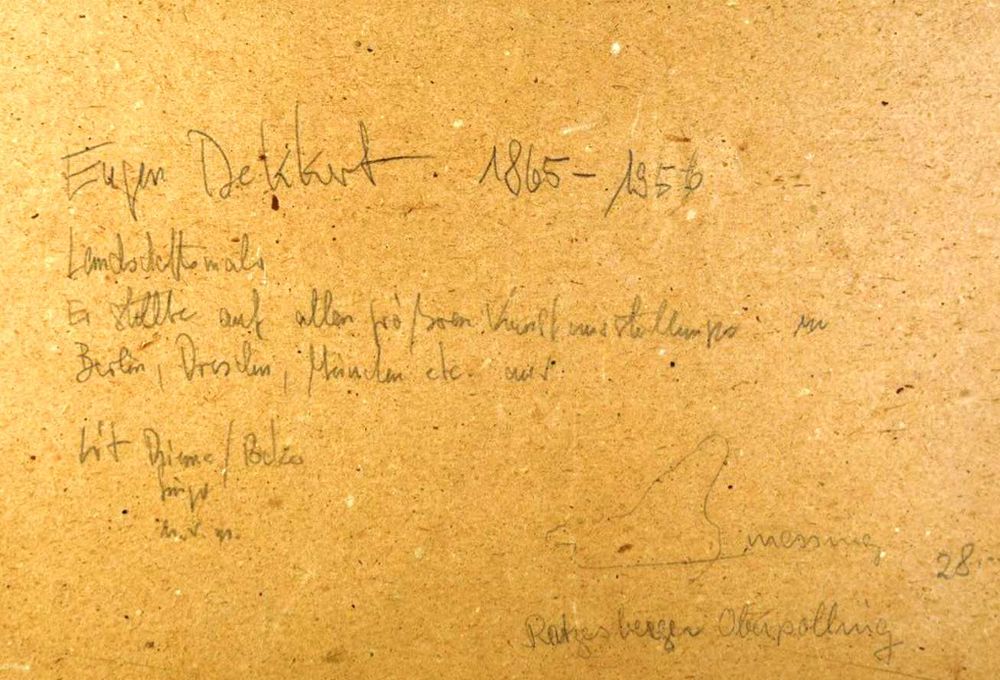 Eugen Dekkert 1865 – 1956
Landschaftsmaler
Er stellte auf allen größeren Kunstausstellungen in
Berlin, Dresden, München etc. aus.
Lit Thieme/Becker
Singer
u.v.a.
messing
28.–
Ratzesberger Oberpolling